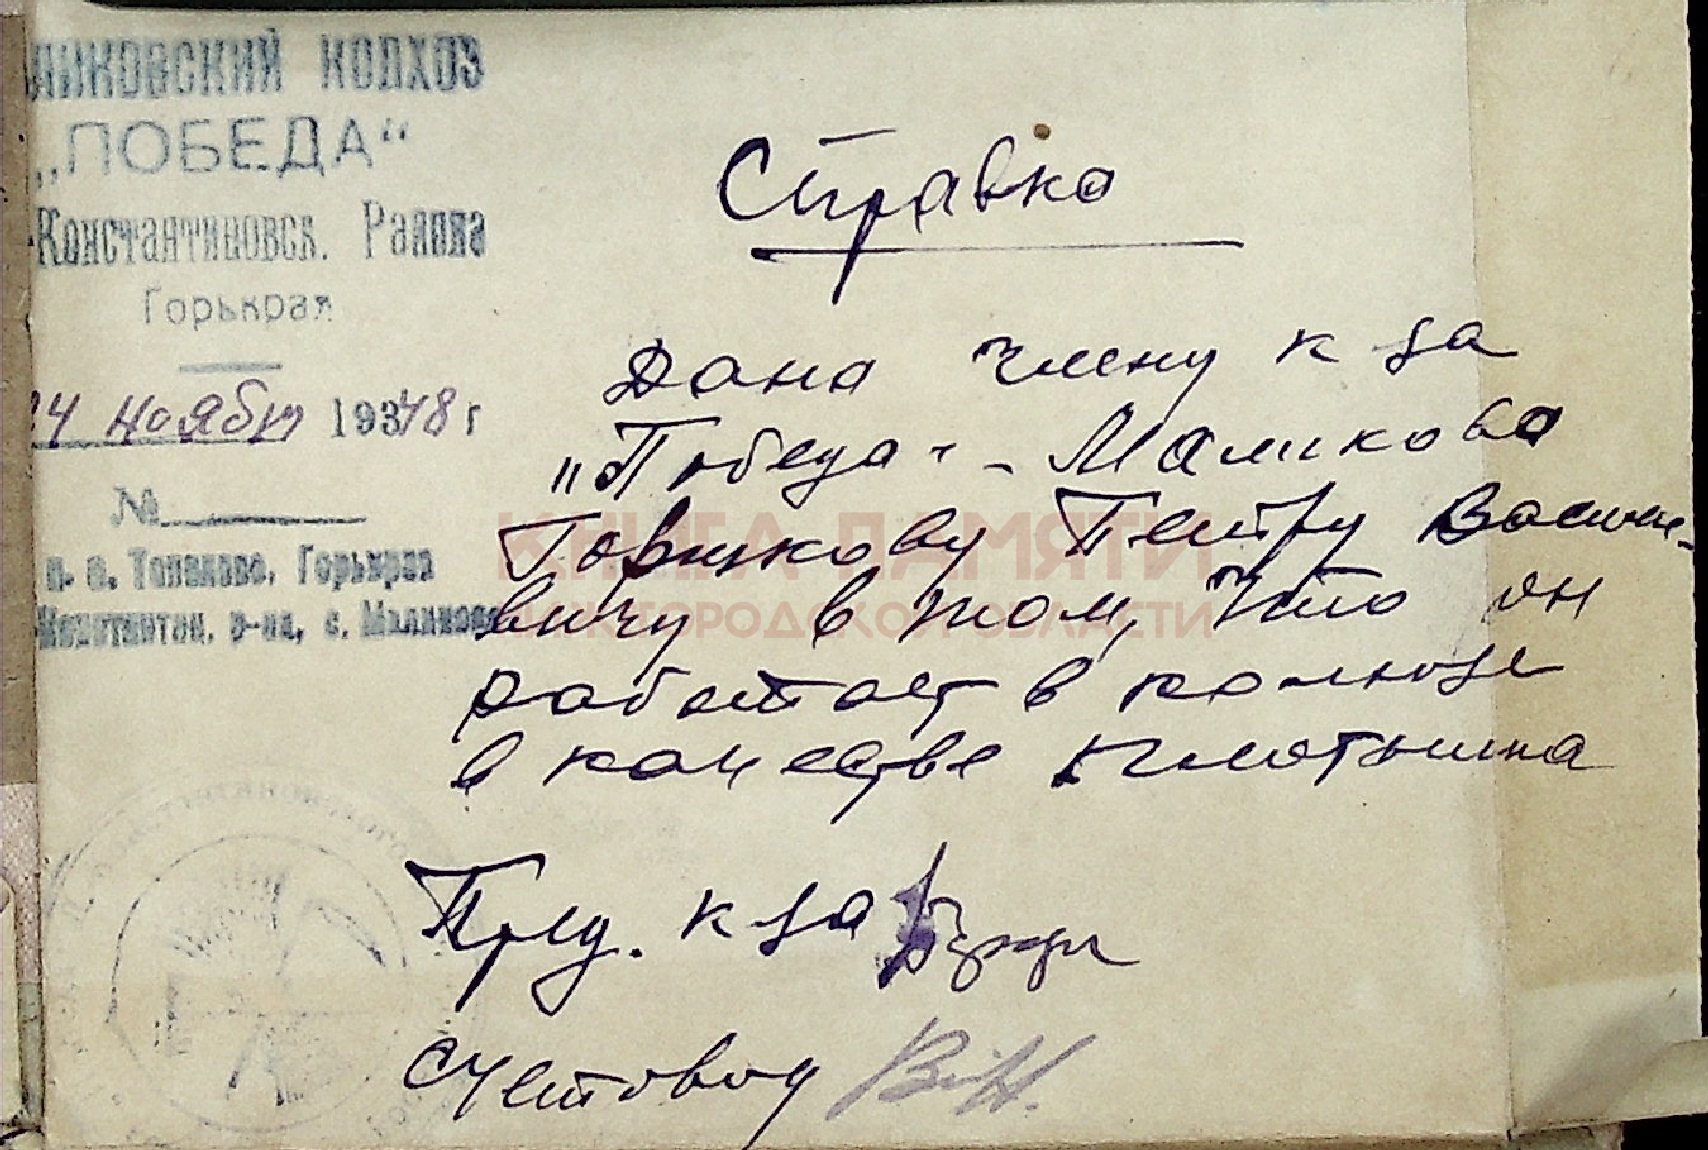 ЛИКОВСКИЙ КОЛХОЗ
„ПОБЕДА“
Константиновск. Района
Горькрая
24 ноября 193448 г
№
п. о. Топалово, Горькрая
Константин. р-на, с. Маликово
Справка
Дана члену к за
"Победа" - Маликова
Петру Василье-
вичу в том, что он
работает в колхозе
в качестве плотника
Пред. к за
Счетовод
КНИГА ПАМЯТИ
НИЖЕГОРОДСКОЙ ОБЛАСТИ